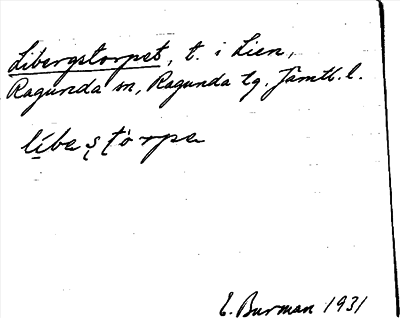 Libergstorpet, t. i Lien,
Ragunda sn, Ragunda tg. Jämtl. l.
líbaștòrpa
E. Burman 1931